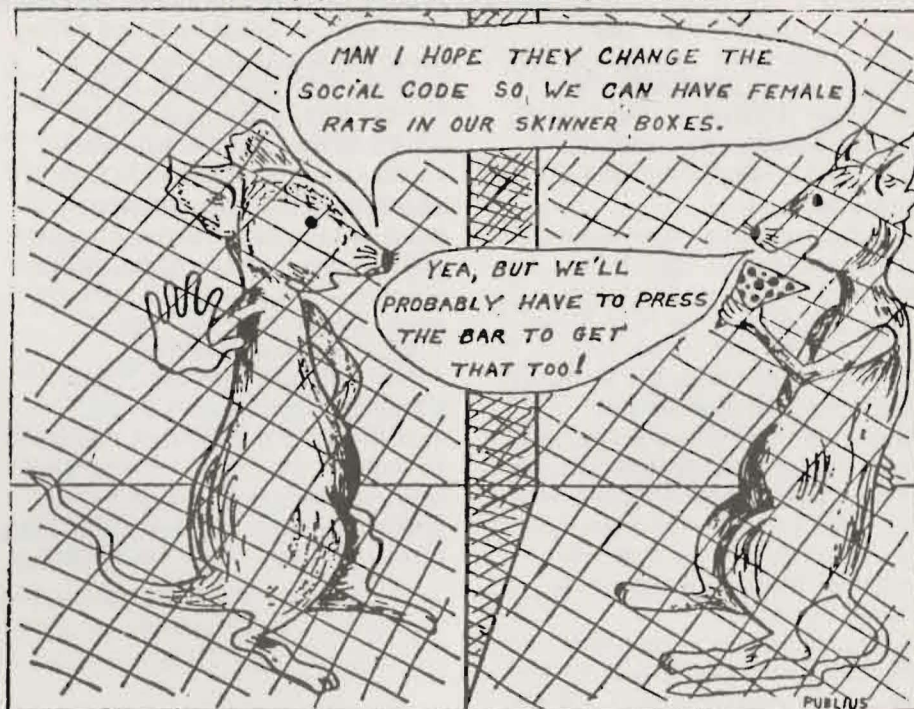 MAN I HOPE THEY CHANGE THE
SOCIAL CODE SO, WE CAN HAVE FEMALE
RATS IN OUR SKINNER BOXES.
YEA, BUT WE'LL
PROBABLY HAVE TO PRESS
THE BAR TO GET
THAT TOO!
PUBLIUS